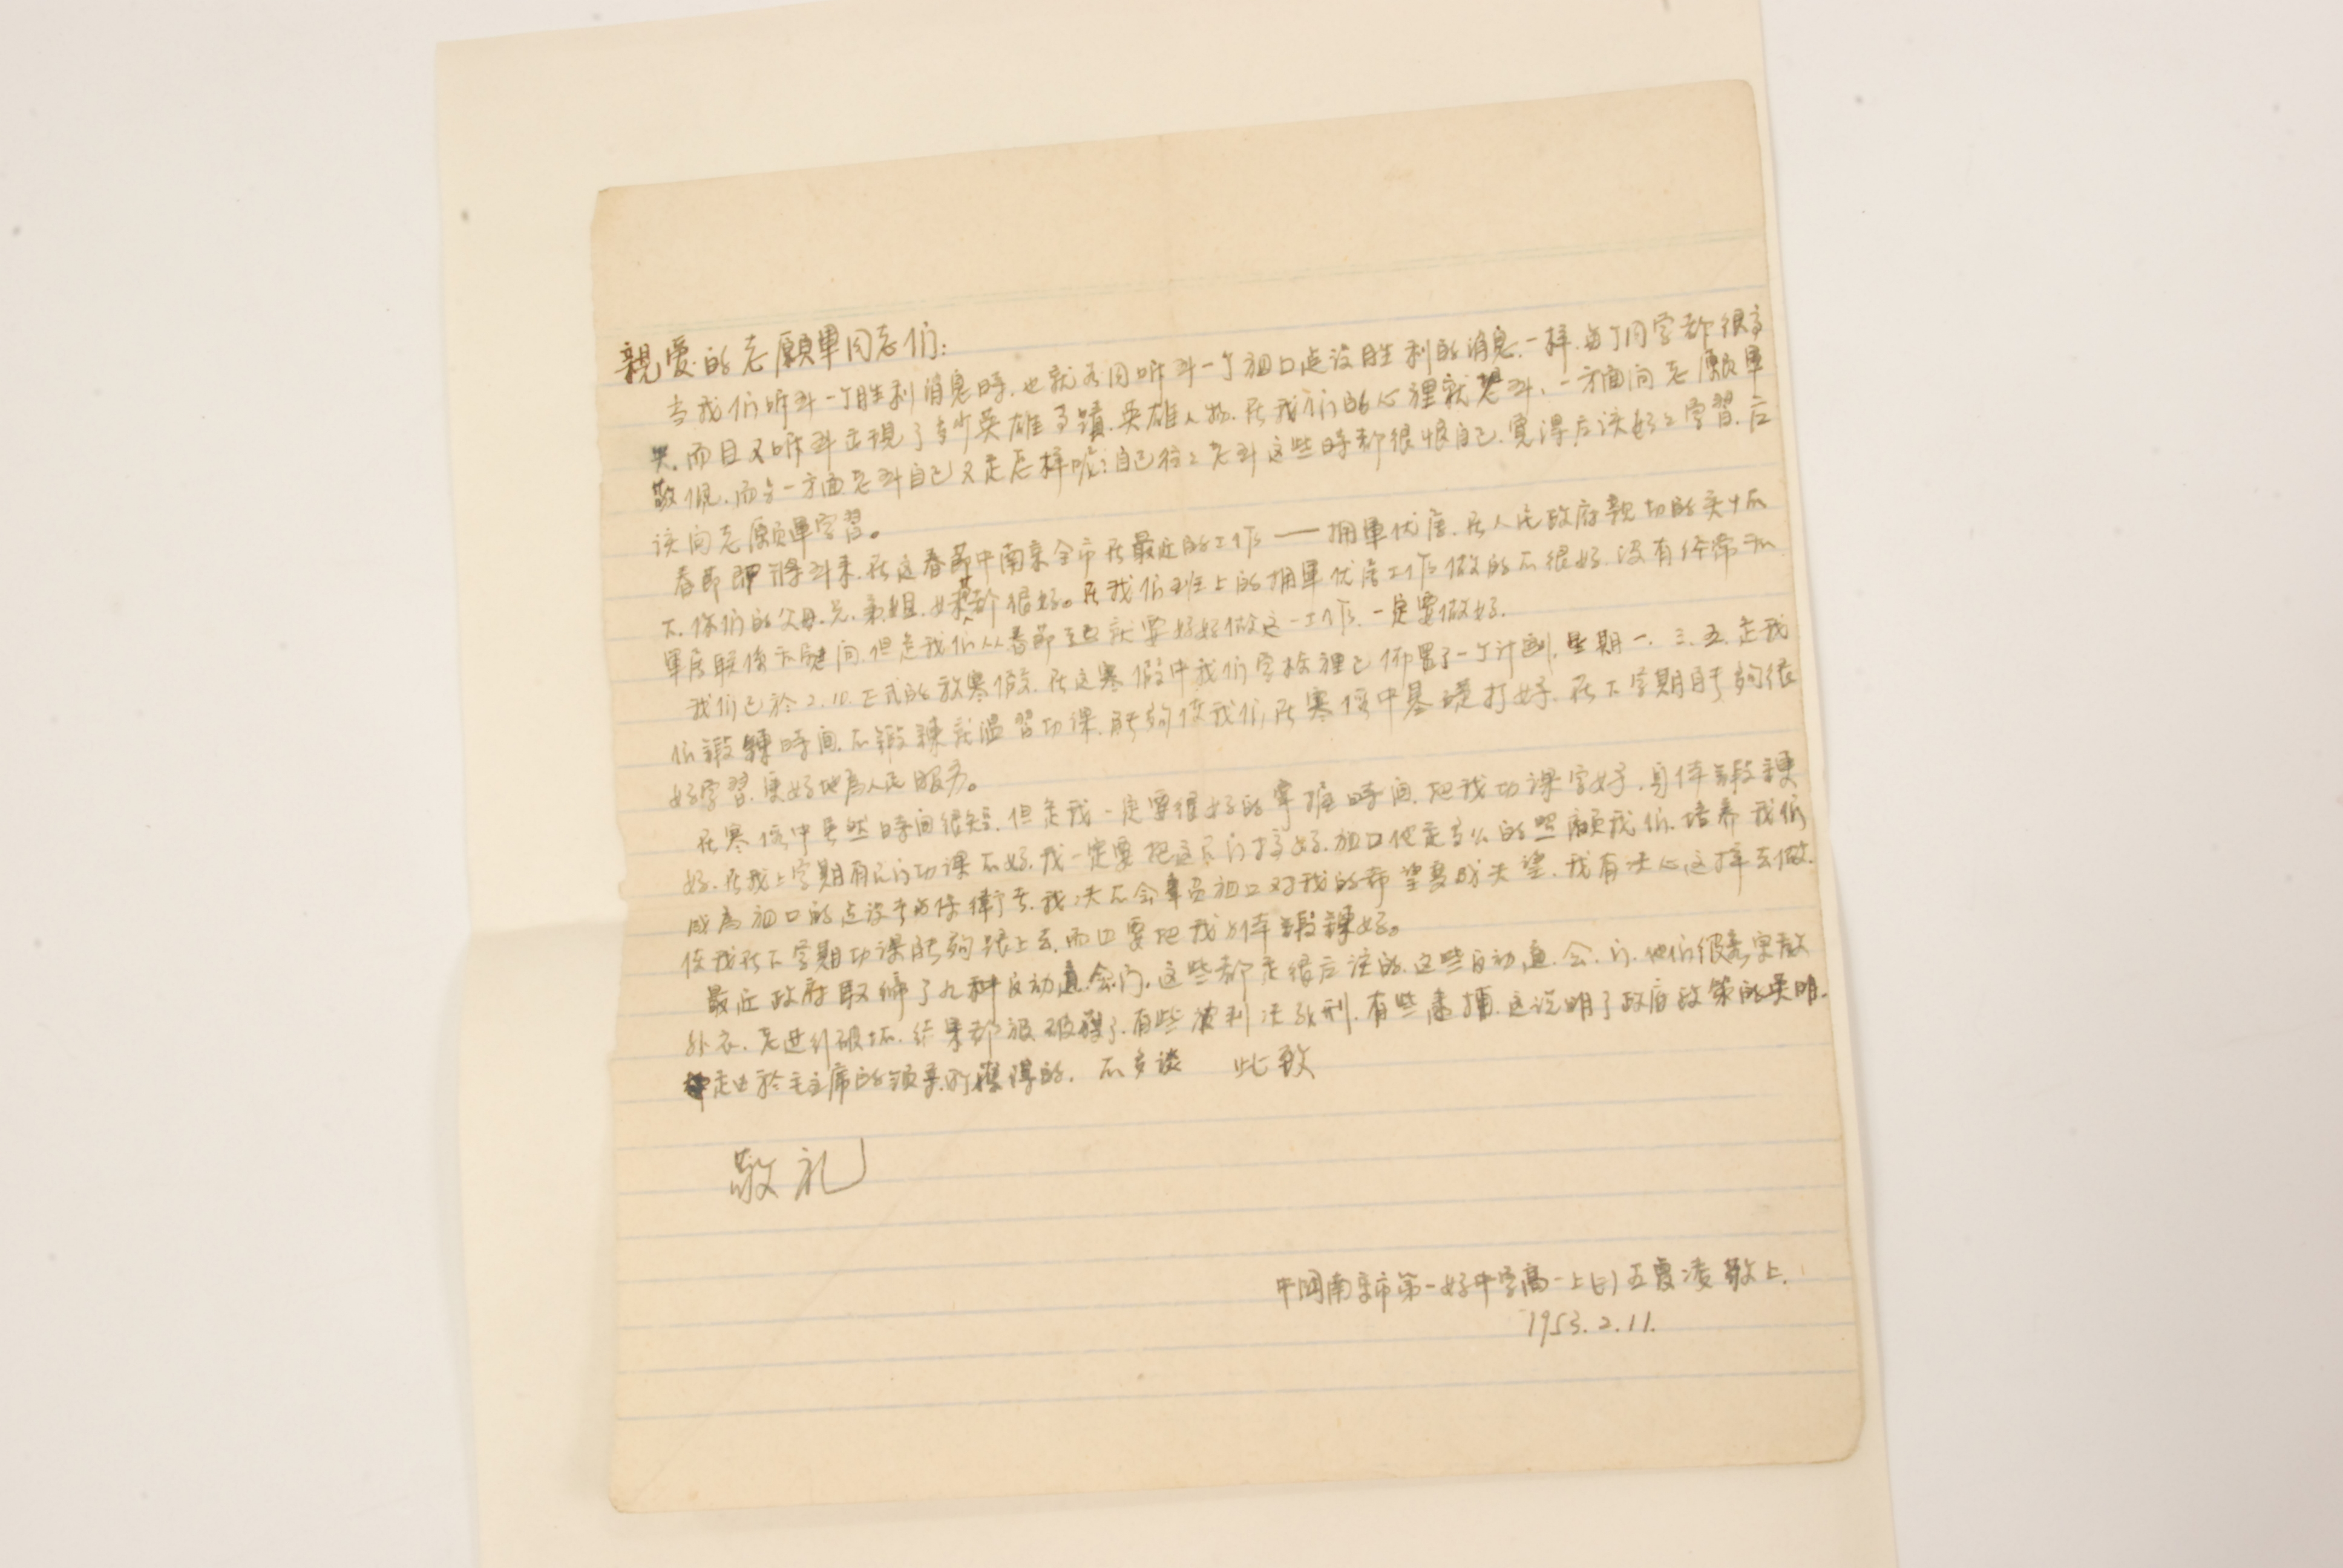 親愛的志願軍同志们:
当我们听到一个胜利消息時.也就如同听到一个祖囗建设胜利的消息.一样.每个同学都很高
兴.而且又听到出現了多少英雄事蹟.英雄人物.在我们的心裡就想到.一方面向志願軍
敬佩.而另一方面想到自己又是怎样呢?自己往々想到这些時都很恨自己.覚得应该好々学習.应
该向志願軍学習。
春節即將到来.在这春節中南京全市在最近的工作——拥軍优属.在人民政府親切的关怀
下.你们的父母.兄.弟.姐.妹都很好。在我们班上的拥軍优属工作做的不很好.没有经常和
軍属联係和慰问.但是我们从春節起就要好好做这一工作.一定要做好.
我们已於2.10.正式的放寒假.在这寒假中我们学校裡已佈置了一个计劃.星期一.三.五.是我
们鍛鍊時间.不鍛鍊就温習功课.能夠使我们在寒假中基礎打好.在下学期能夠很
好学習.更好地為人民服务。
在寒假中虽然時间很短.但是我一定要很好的掌握時间.把我功课学好.身体鍛鍊
好.在我上学期有几门功课不好.我一定要把这几门搞好.祖囗他是多么的照顧我们.培养我们
成為祖囗的建设者与保衛者.我决不会辜負祖囗对我的希望变成失望.我有决心这样去做.
使我在下学期功课能夠跟上去.而且要把我身体鍛鍊好。
最近政府取缔了九种反动道.会.门.这些都是很应该的.这些反动道.会.门.他们披着宗教
外衣.来进行破坏.结果都被破獲了.有些被判决死刑.有些逮捕.这说明了政府政策的英明.
是由於毛主席的领导.所獲得的. 不多谈 此致
敬礼
中国南京市第一女中学高一上(七)王霞凌敬上.
1953.2.11.